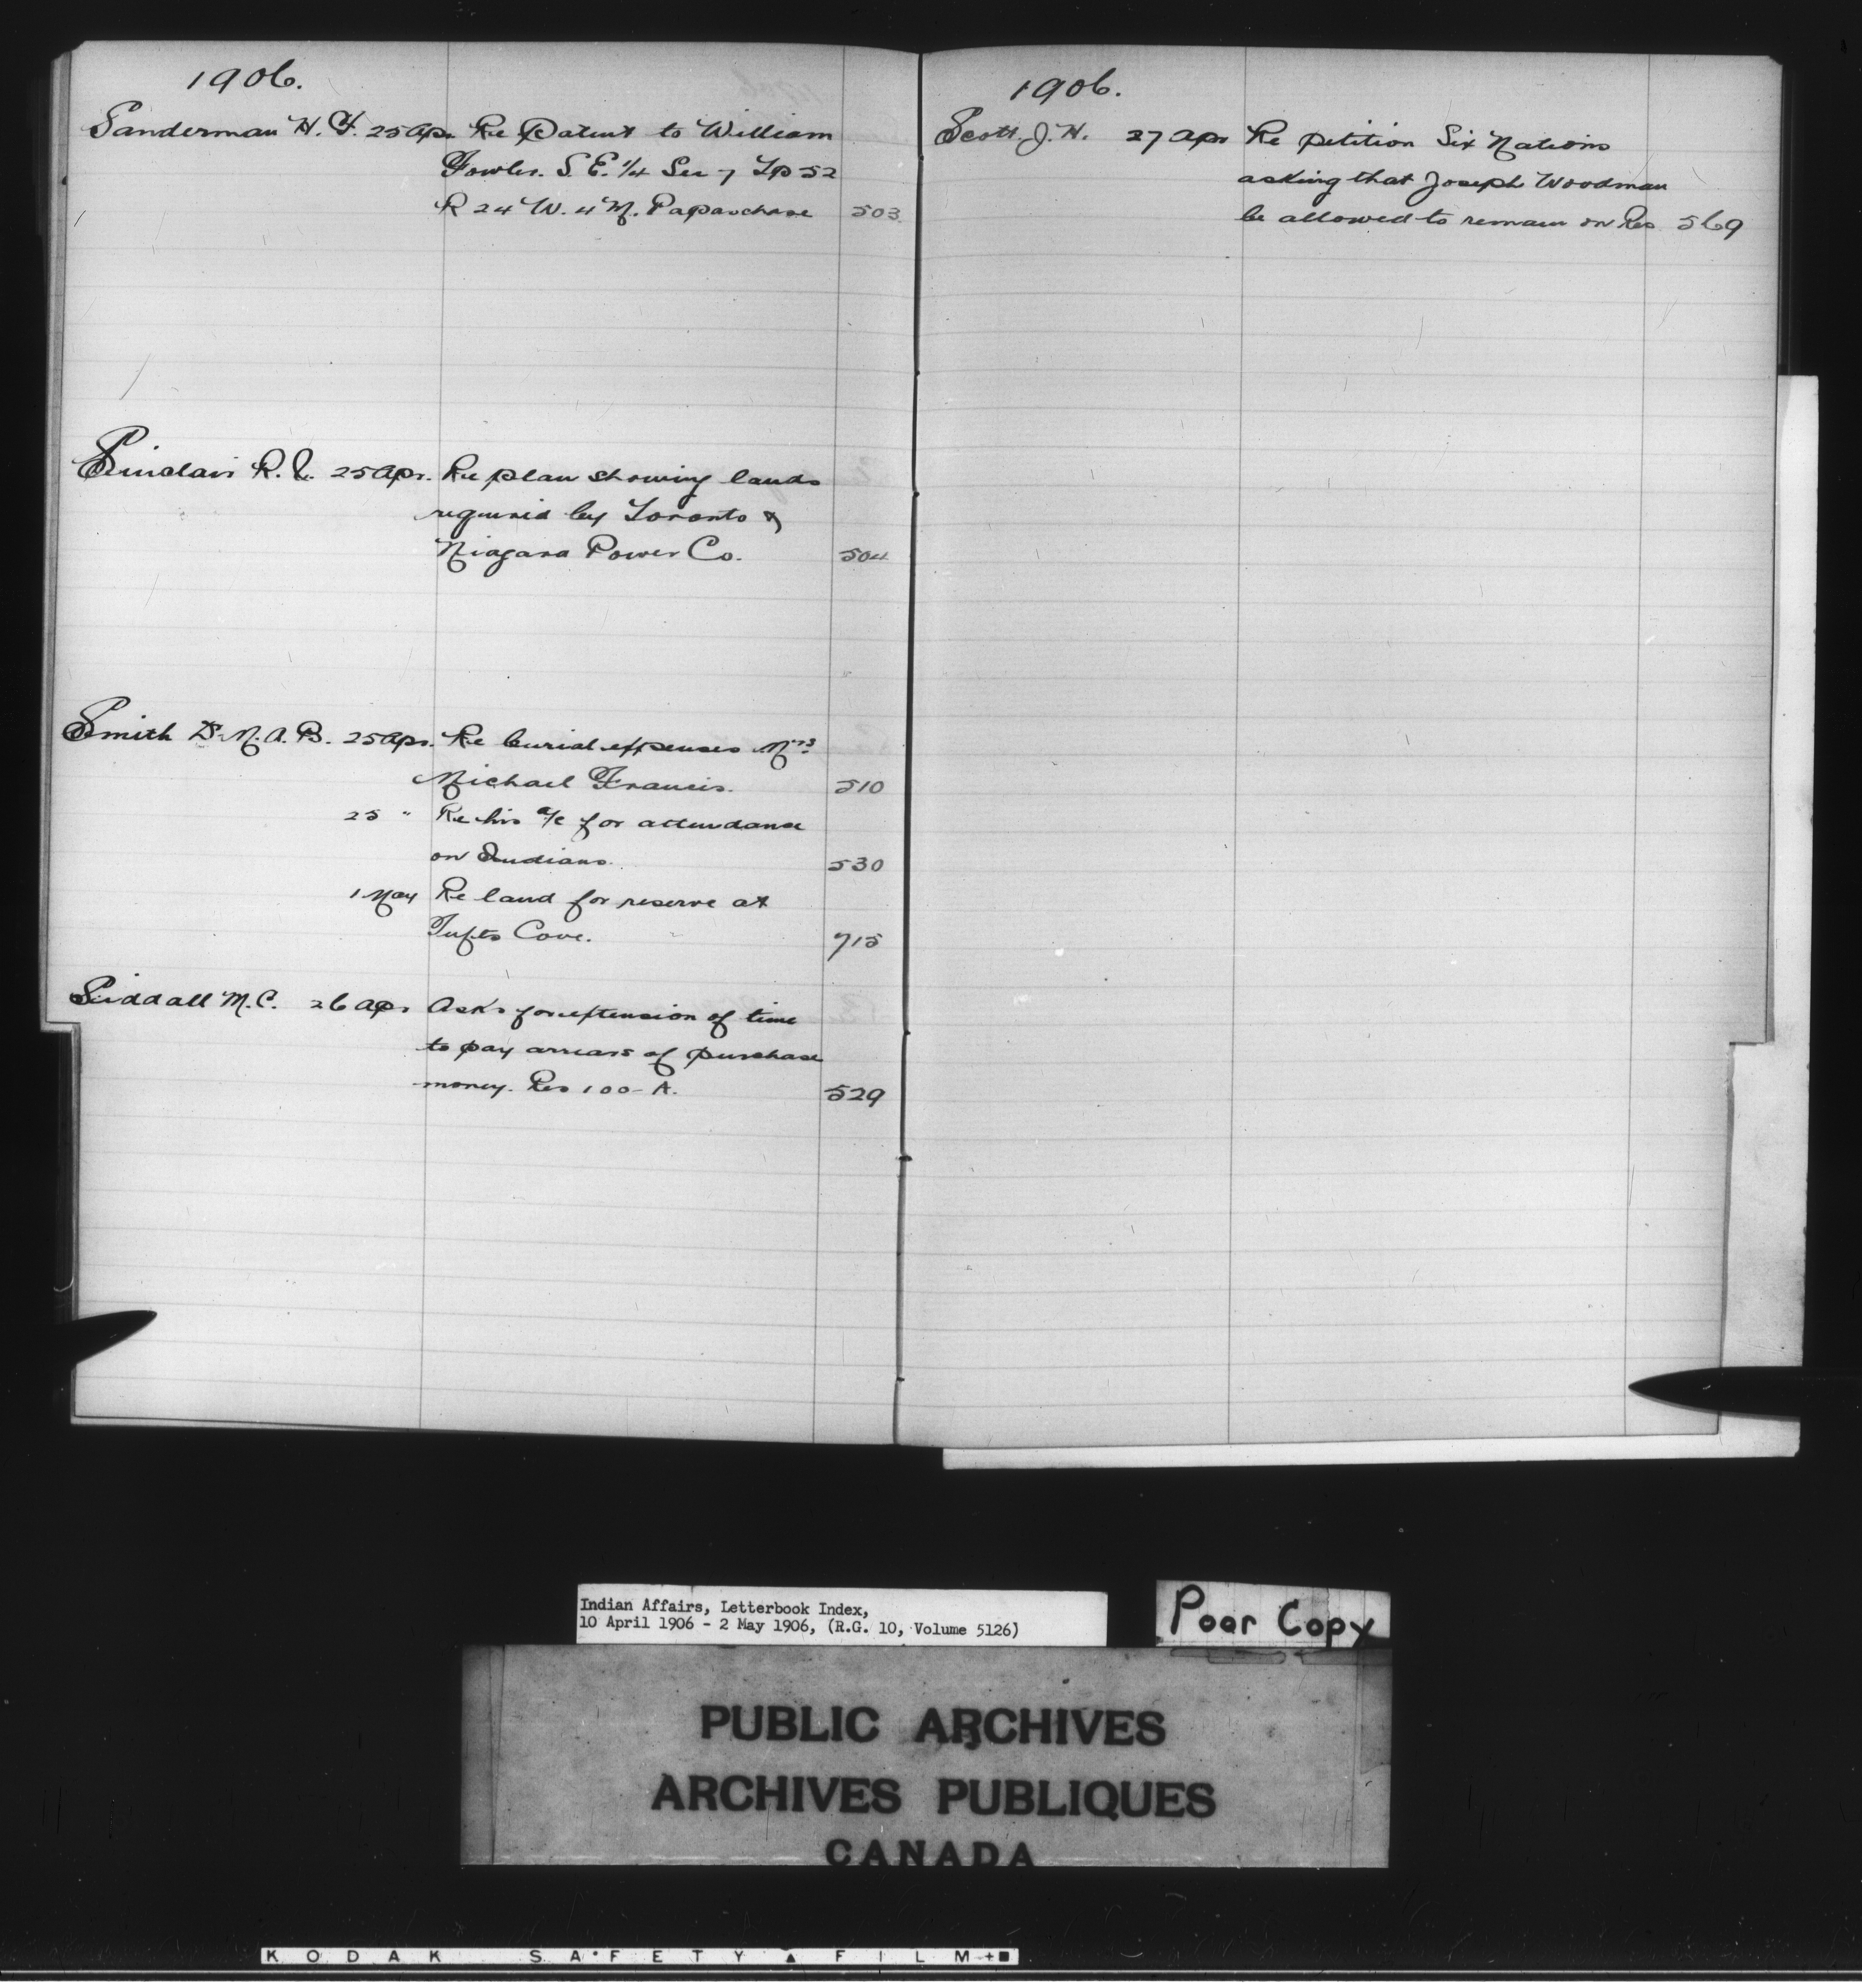 1906.
Sanderman H. Y. 25 Apr. Re Patent to William
Fowler. S. E. 1/4 Sec 7 Tp 52
R 24 W. 4 M. Papaschase 503
Sinclair R. V. 25 Apr. Re plan showing lands
required by Toronto &
Niagara Power Co. 504
Smith Dr M. A. B. 25 Apr. Re burial expenses Mrs
Michael Francis. 510
25 " Re his a/c for attendance
on Indians. 530
1 May Re land for reserve at
Tufts Cove. 715
Siddall M. C. 26 Apr Asks for extension of time
to pay arrears of purchase
money. Res 100-A. 529
1906.
Scott J. H. 27 Apr Re petition Six Nations
asking that Joseph Woodman
be allowed to remain on Res 569
Indian Affairs, Letterbook Index,
10 April 1906 - 2 May 1906, (R.G. 10, Volume 5126)
Poor Copy
PUBLIC ARCHIVES
ARCHIVES PUBLIQUES
CANADA
KODAK SAFETY FILM